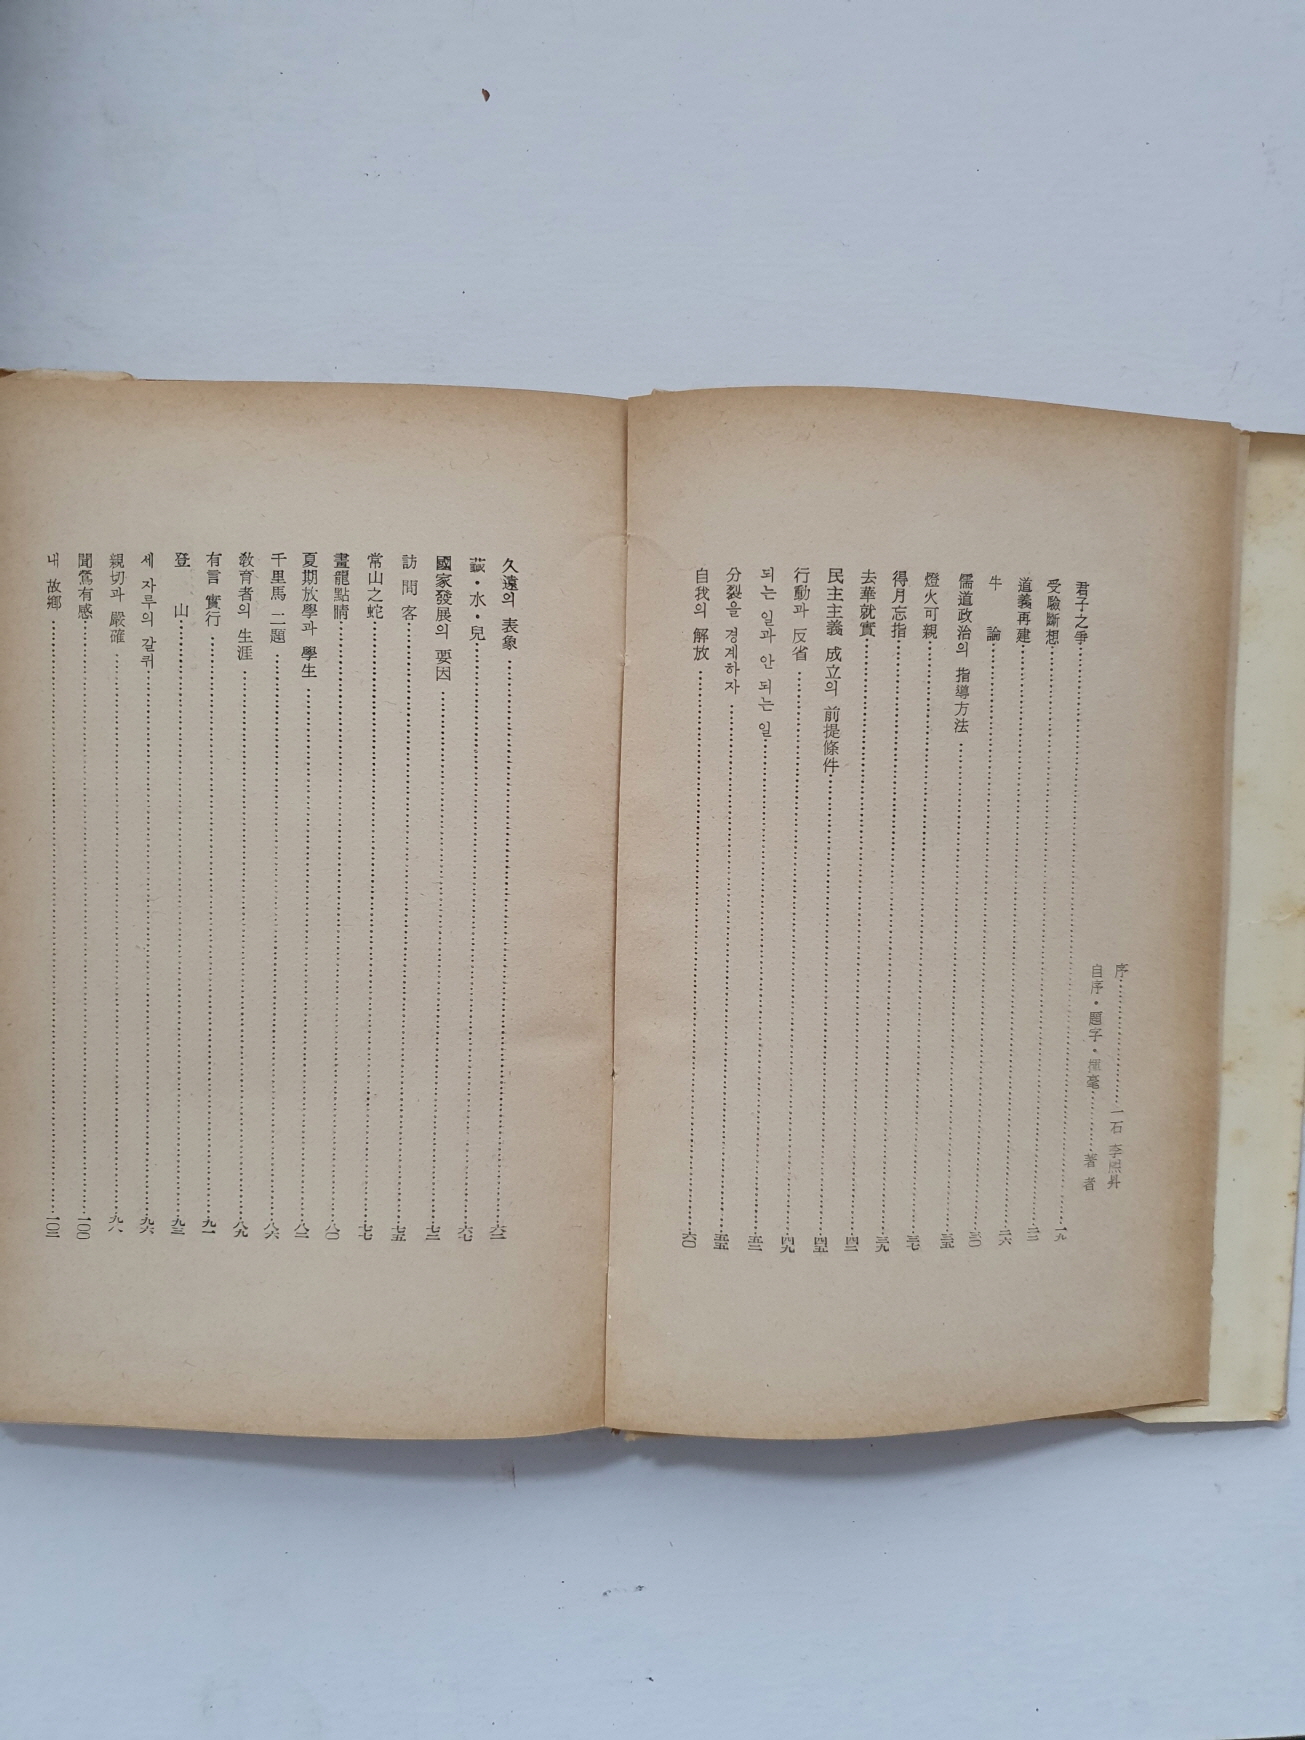 序……一石 李熙昇
自序・題字・揮毫……著者
君子之爭……一九
受驗斷想……二二
道義再建……二六
牛 論……三〇
儒道政治의 指導方法……三五
燈火可親……三七
得月忘指……三九
去華就實……四二
民主主義 成立의 前提條件……四五
行動과 反省……四九
되는 일과 안 되는 일……五二
分裂을 경계하자……五五
自我의 解放……六〇
久遠의 表象……六三
・水・兒……六七
國家發展의 要因……七三
訪問客……七五
常山之蛇……七七
畫龍點睛……八〇
夏期放學과 學生……八三
千里馬 二題……八六
敎育者의 生涯……八九
有言 實行……九一
登 山……九三
세 자루의 갈퀴……九六
親切과 嚴確……九八
聞鶯有感……一〇〇
내 故鄕……一〇三